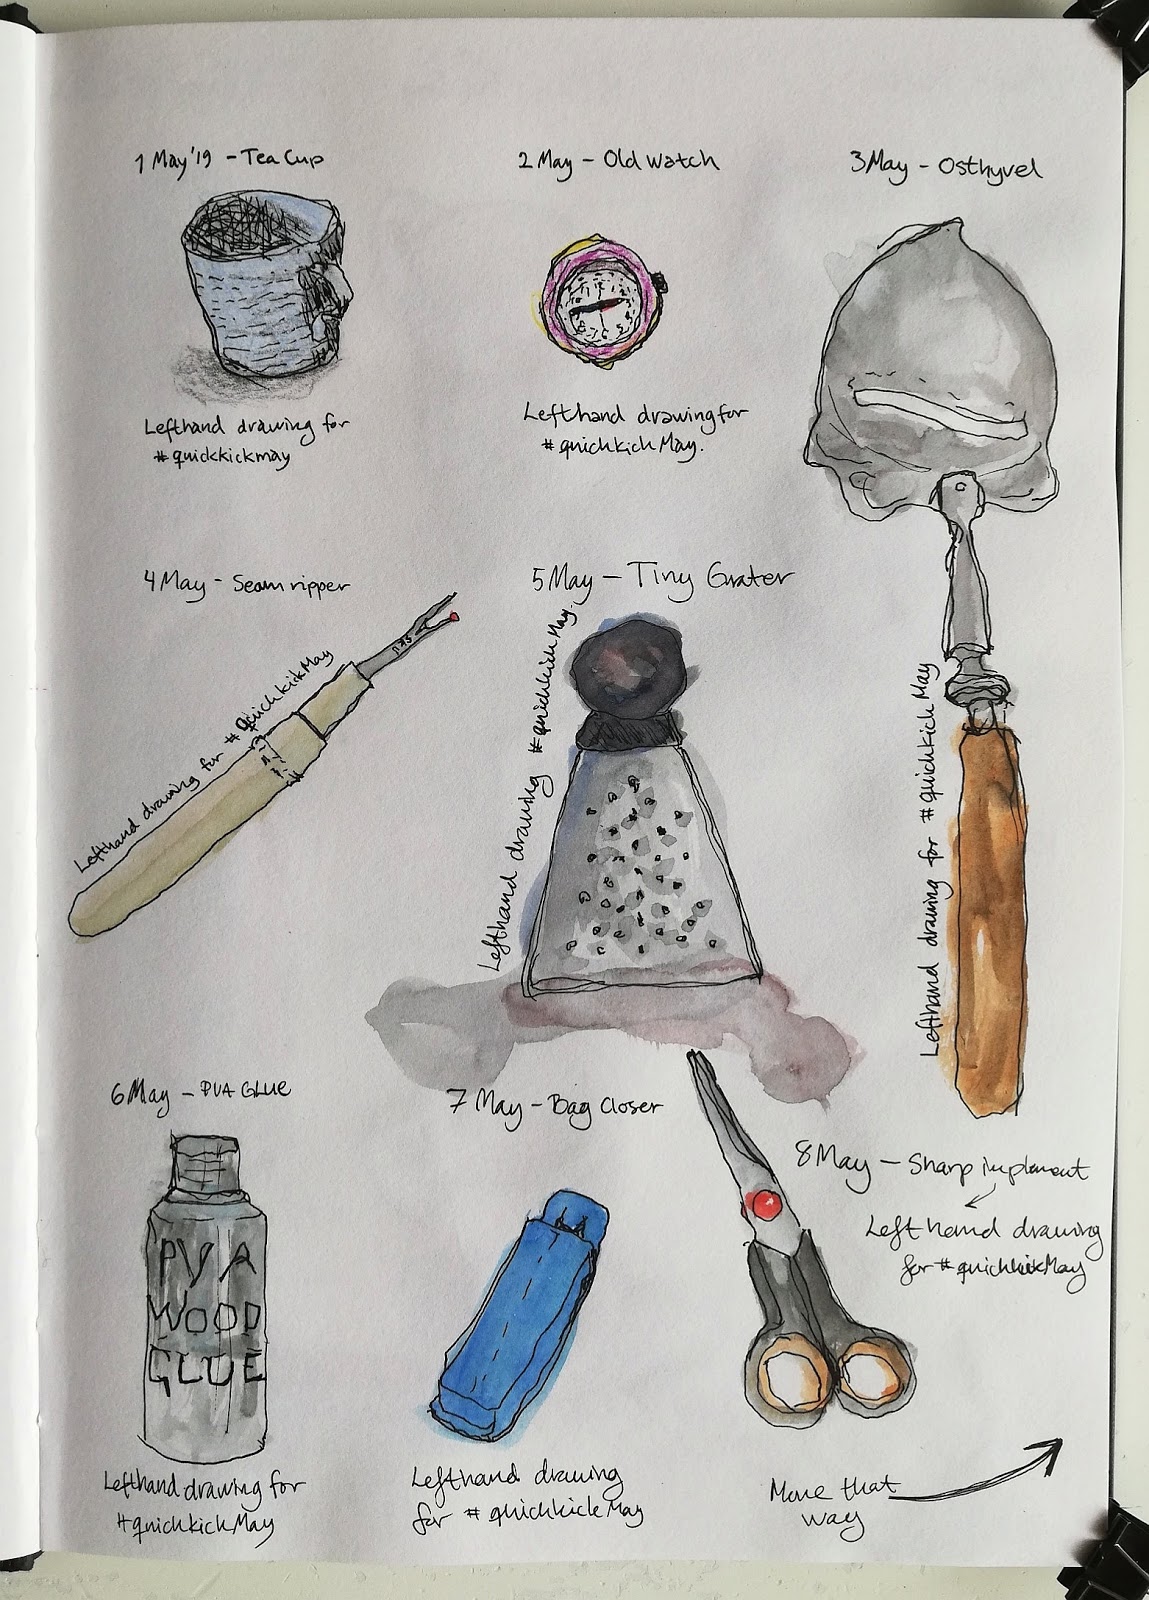 1 May '19 - Tea Cup
Lefthand drawing for
#quickkickmay
2 May - Old Watch
Lefthand drawing for
#quickkick May.
3 May - Osthyvel
Lefthand drawing for #quickkick May
4 May - Seam ripper
Lefthand drawing for #QuickkikMay
5 May - Tiny Grater
Lefthand drawing #quickkickMay.
6 May - PVA GLUE
PVA
WOOD
GLUE
Lefthand drawing for
#quickkickMay
7 May - Bag Closer
Lefthand drawing
for #quickkick May
8 May - Sharp implement
Left hand drawing
for #quickkickMay
Move that
way